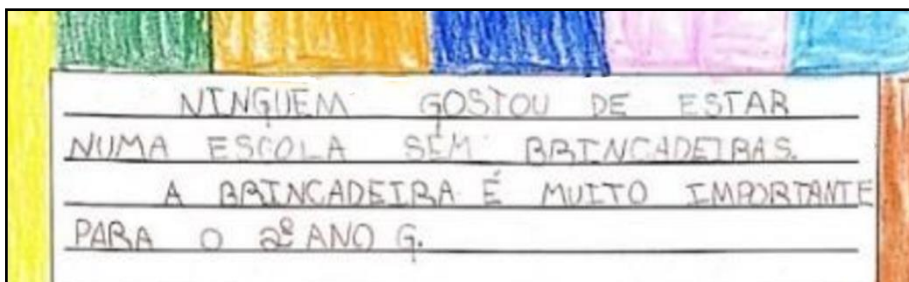 NINGUEM GOSTOU DE ESTAR
NUMA ESCOLA SEM BRINCADEIRAS.
A BRINCADEIRA É MUITO IMPORTANTE
PARA O 2º ANO G.